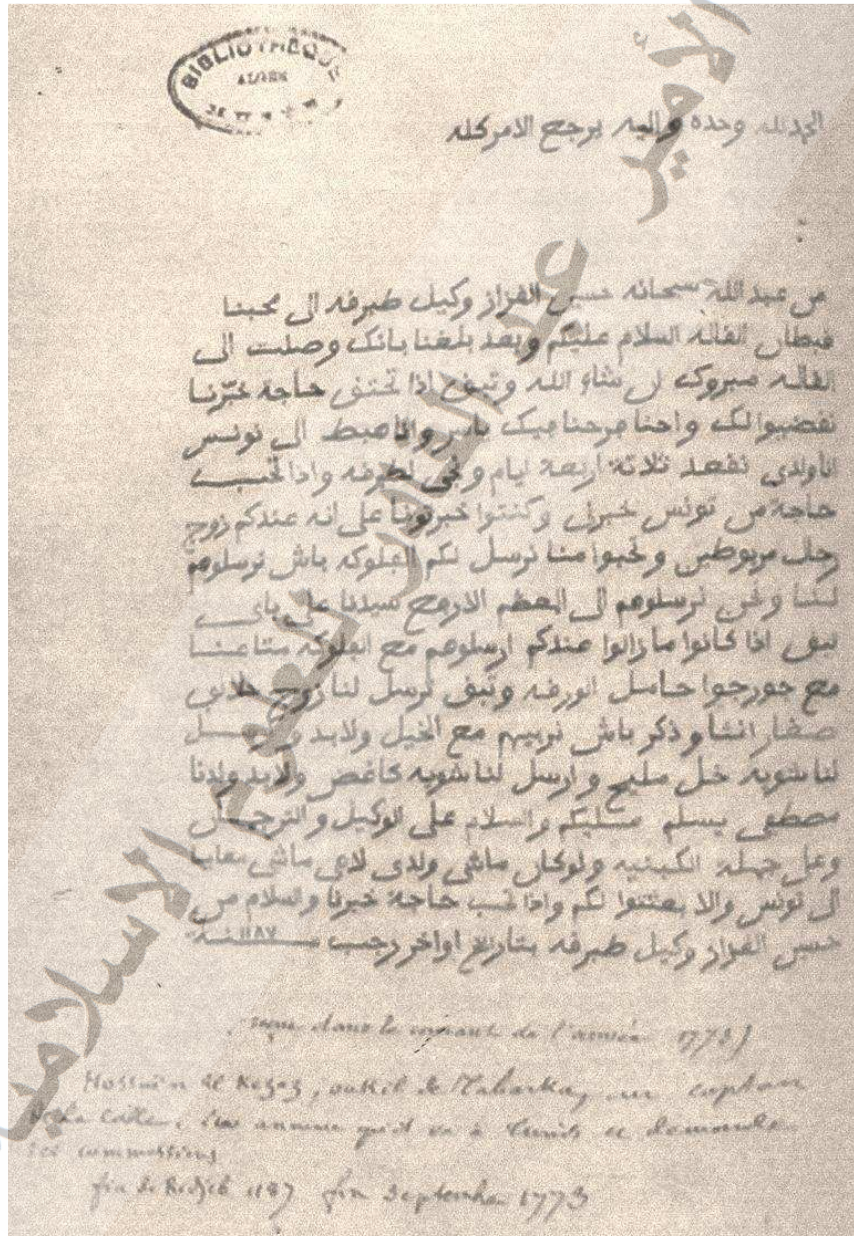 BIBLIOTHEQUE
ALGER
الحمد لله وحده واليه يرجع الامر كله
من عبد الله سبحانه حسين القزاز وكيل طبرقه الى محبنا
قبطان القاله السلام عليكم وبعد بلغنا بانك وصلت الى
القاله مبروك ان شاء الله وتبقى اذا تحتق حاجة خبّرنا
نقضيوا لك واحنا فرحنا بيك ياسر وانا هبط الى تونس
ياولدى نقعد ثلاثة اربعة ايام ونجى لطبرقه واذا تحب
حاجة من تونس خبرنى وكنتوا خبرتونا على انه عندكم زوج
رجال مربوطين وتحبوا منا نرسل لكم الفلوكه باش ترسلوهم
لنا ونحن نرسلوهم الى المعظم الارفع سيدنا على باى
تبقى اذا كانوا مازالوا عندكم ارسلوهم مع الفلوكه متاعنا
مع جورجوا حامل الورقه وتبقى ترسل لنا زوج حلالف
صغار انثا وذكر باش نربيهم مع الخيل ولابد ترسل
لنا شويه خل مليح وارسل لنا شويه كاغض ولابد ولدنا
مصطفى يسلم عليكم والسلام على الوكيل والترجمان
وعلى جملة الكبنيه ولوكان ماشى ولدى لاعى ماشى معايا
الى تونس والا بعثتوا لكم واذا تحب حاجة خبرنا والسلام من
حسين القزاز وكيل طبرقه بتاريخ اواخر رجب سنة ١١٨٧
(reçue dans le courant de l'année 1773)
Hossuïn el Kezaz, oukil de Tabarka, au capitaine
de la Calle. Lui annonce qu'il va à Tunis et demande
ses commissions
fin de Redjeb 1187 fin Septembre 1773
الأمير عبد القادر للعلوم الإسلامية